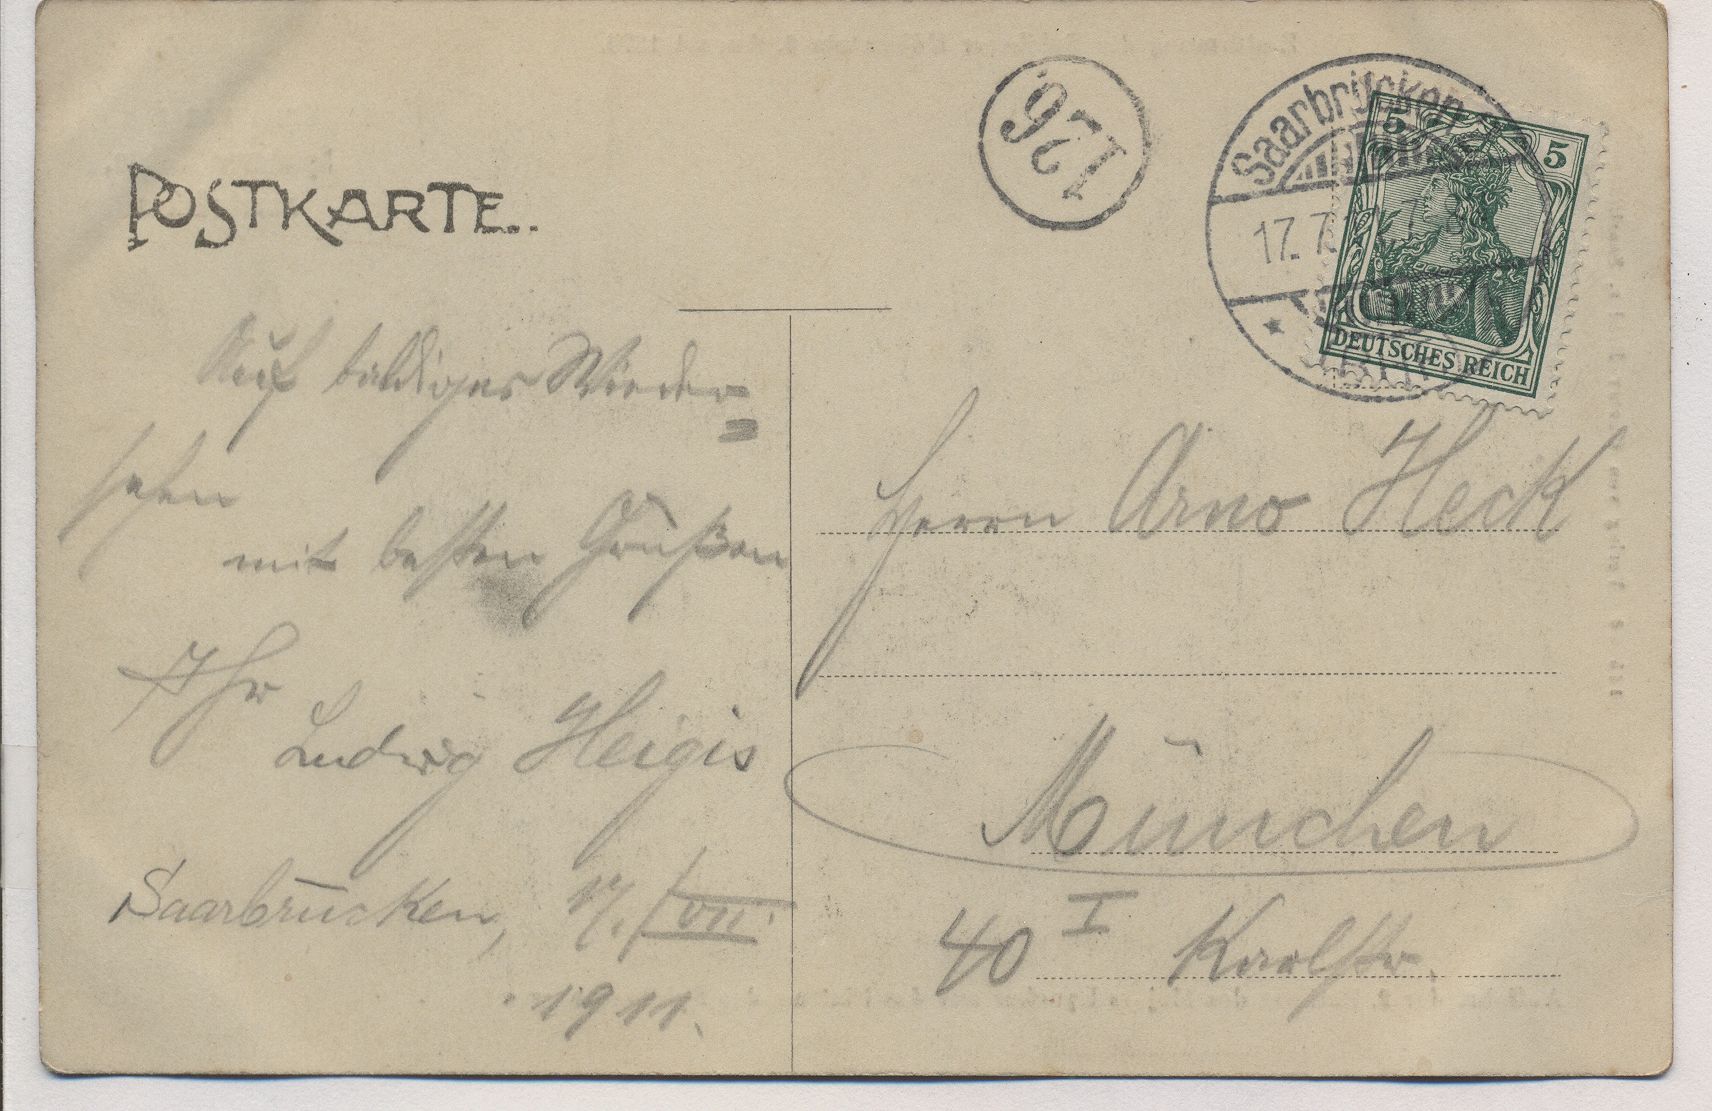 POSTKARTE..
126
Saarbrücken
17.7.
5
5
DEUTSCHES REICH
Auf baldiges Wieder=
sehen
mit besten Grüßen
Ihr
Ludwig Heigis
Saarbrücken, 17./VII.
1911.
Herrn Arno Heck
München
40 I Karlstr.